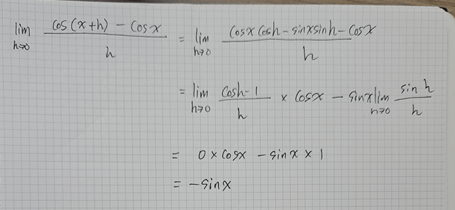 lim h→0 (cos(x+h) - cosx)/h = lim h→0 (cosx cosh - sinx sinh - cosx)/h
= lim h→0 (cosh-1)/h × cosx - sinx lim h→0 (sin h)/h
= 0 × cosx - sinx × 1
= -sinx